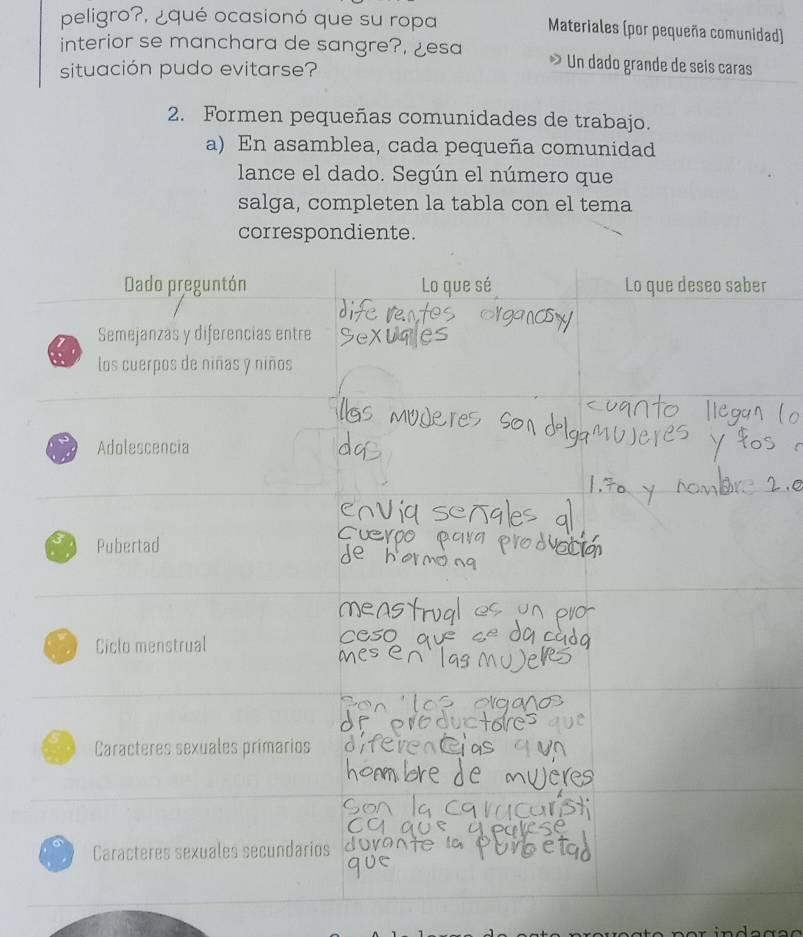 peligro?, ¿qué ocasionó que su ropa
interior se manchara de sangre?, ¿esa
situación pudo evitarse?
Materiales (por pequeña comunidad)
Un dado grande de seis caras
2. Formen pequeñas comunidades de trabajo.
a) En asamblea, cada pequeña comunidad
lance el dado. Según el número que
salga, completen la tabla con el tema
correspondiente.
Dado preguntón
Lo que sé
Lo que deseo saber
1
Semejanzas y diferencias entre
los cuerpos de niñas y niños
diferentes organos y
sexuales
2
Adolescencia
llas moderes son delga
das
cuanto llegan lo
muJeres y fos
1.70 y nombre 2.
3
Pubertad
envia señales al
cuerpo para producción
de hormona
Ciclo menstrual
menstrual es un pro
ceso que se da cada
mes en las muJeres
5
Caracteres sexuales primarios
son los organos
de productores que
diferencias a un
hombre de mujeres
6
Caracteres sexuales secundarios
son la caracaristi
ca que aparese
durante la purbetad
que